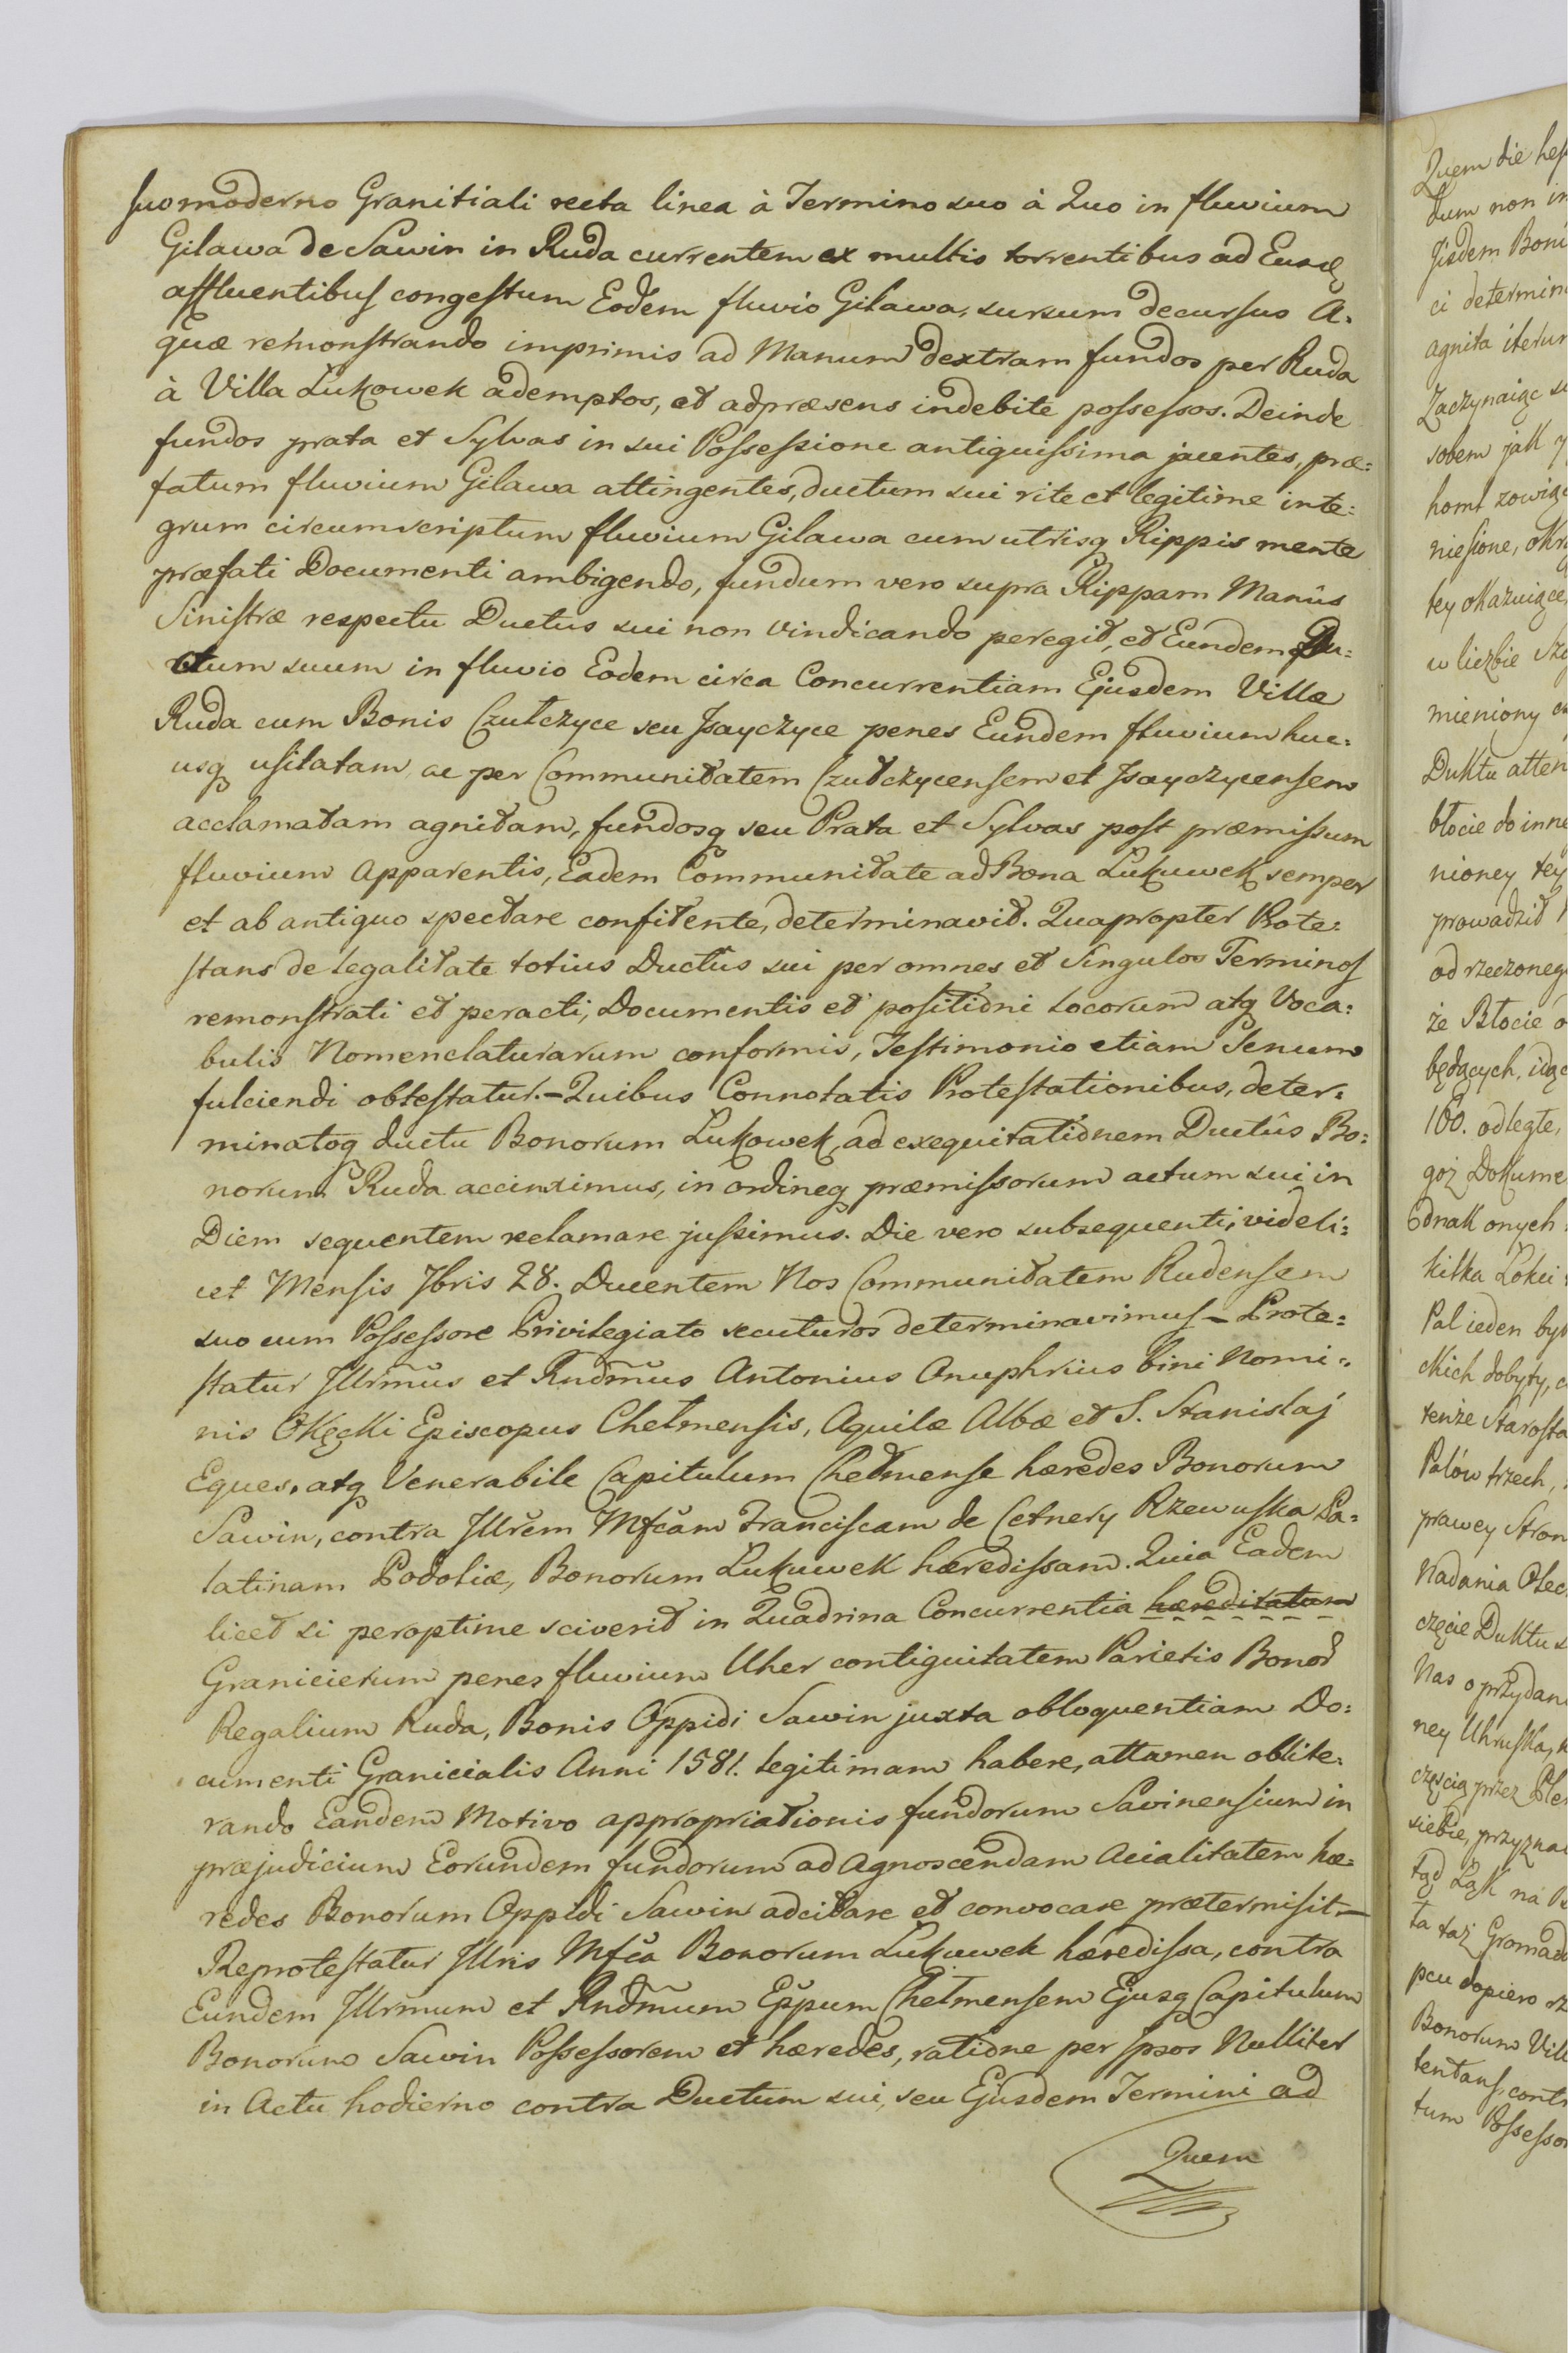 suo moderno Granitiali recta linea à Termino suo à Quo in fluvium
Gilawa de Sawin in Ruda currentem ex multis torrentibus ad Eunđ
affluentibus congestum Eodem fluvio Gilawa, sursum decursus A-
quæ remonstrando imprimis ad Manum dextram fundos per Ruda
à Villa Lukowek ademptos, et adpræsens indebite possessos. Deinde
fundos prata et Sylvas in sui Possessione antiquissima jacentes, præ=
fatum fluvium Gilawa attingentes, ductum sui rite et legitime inte=
grum circumscriptum fluvium Gilawa cum utrisq Rippis mente
præfati Documenti ambigendo, fundum vero supra Rippam Manûs
Sinistræ respectu Ductus sui non vindicando peregit, et Eundem Du=
ctum suum in fluvio Eodem circa Concurrentiam Ejusdem Villæ
Ruda cum Bonis Czułczyce seu Jsayczyce penes Eundem fluvium huc=
usq usitatam, ac per Communitatem Czułczycensem et Jsayczycensem
acclamatam agnitam, fundosq seu Prata et Sylvas post præmissum
fluvium Apparentis, Eadem Communitate ad Bona Lukuwek semper
et ab antiquo spectare confitente, determinavit. Quapropter Prote=
stans de legalitate totius Ductûs sui per omnes et Singulos Terminos
remonstrati et peracti, Documentis et positioni Locorum atq Voca=
bulis Nomenclaturarum conformis, Testimonio etiam Senum
fulciendi obtestatur.- Quibus Connotatis Protestationibus, deter=
minatoq ductu Bonorum Lukowek, ad exequitationem Ductûs Bo=
norum Ruda accinximus, in ordineq præmissorum actum sui in
Diem sequentem reclamare jussimus. Die vero subsequenti, videli=
cet Mensis 7bris 28. Ducentem Nos Communitatem Rudensem
suo cum Possessore Privilegiato secuturos determinavimus – Prote=
statur Jllrm̃us et Rndm̃us Antonius Onuphrius bini Nomi=
nis Okęcki Episcopus Chełmensis, Aquilæ Albæ et S. Stanislaj
Eques, atq Venerabile Capitulum Chełmense hæredes Bonorum
Sawin, contra Jllrem Mfcam Franciscam de Cetnery Rzewuska Pa=
latinam Podoliæ, Bonorum Lukuwek hæredissam. Quia Eadem
licet si peroptime sciverit in Quadrina Concurrentia hæreditatum
Granicierum penes fluvium Uher contiguitatem Parietis Bonor
Regalium Ruda, Bonis Oppidi Sawin juxta obloquentiam Do=
cumenti Granicialis Anni 1581. legitimam habere, attamen oblite=
rando Eandem Motivo appropriationis fundorum Savinensium in
præjudicium Eorundem fundorum ad Agnoscendam Acialitatem hæ=
redes Bonorum Oppidi Sawin adcitare et convocare prætermisit. –
Reprotestatur Jllris Mfca Bonorum Lukuwek hæredissa, contra
Eundem Jllrm̃um et Rndm̃um Ep̃pum Chełmensem Ejusq Capitulum
Bonorum Sawin Possessorem et hæredes, ratione per Jpsos Nulliter
in Actu hodierno contra Ductum sui, seu Ejusdem Termini ad
Quem
Quem die hes
dum non in
Jisdem Boni
ci determin
agnita iterum
Zaczynaiąc
sobem jak
homt zowią
niesione, okr
tey okazuiące
w liczbie
mieniony
Duktu atten
błocie do inne
nioney tey
prowadzid
od rzeczoneg
że Błocie o
będących, idąc
160. odlegte,
goż Dokume
ednak onych
kilka Łokci
Pal ieden by
ckich dobyty,
tenże Starosta
Palów trzech,
prawey Stron
Nadania
częcie Duktu
Nas o przydan
ney Uhruska,
częścią przez Ple
siebie, przyznai
tąd Łąk na
ta taż Gromad
peu dopiero
Bonorum Vill
tentans, contr
tum Possessor